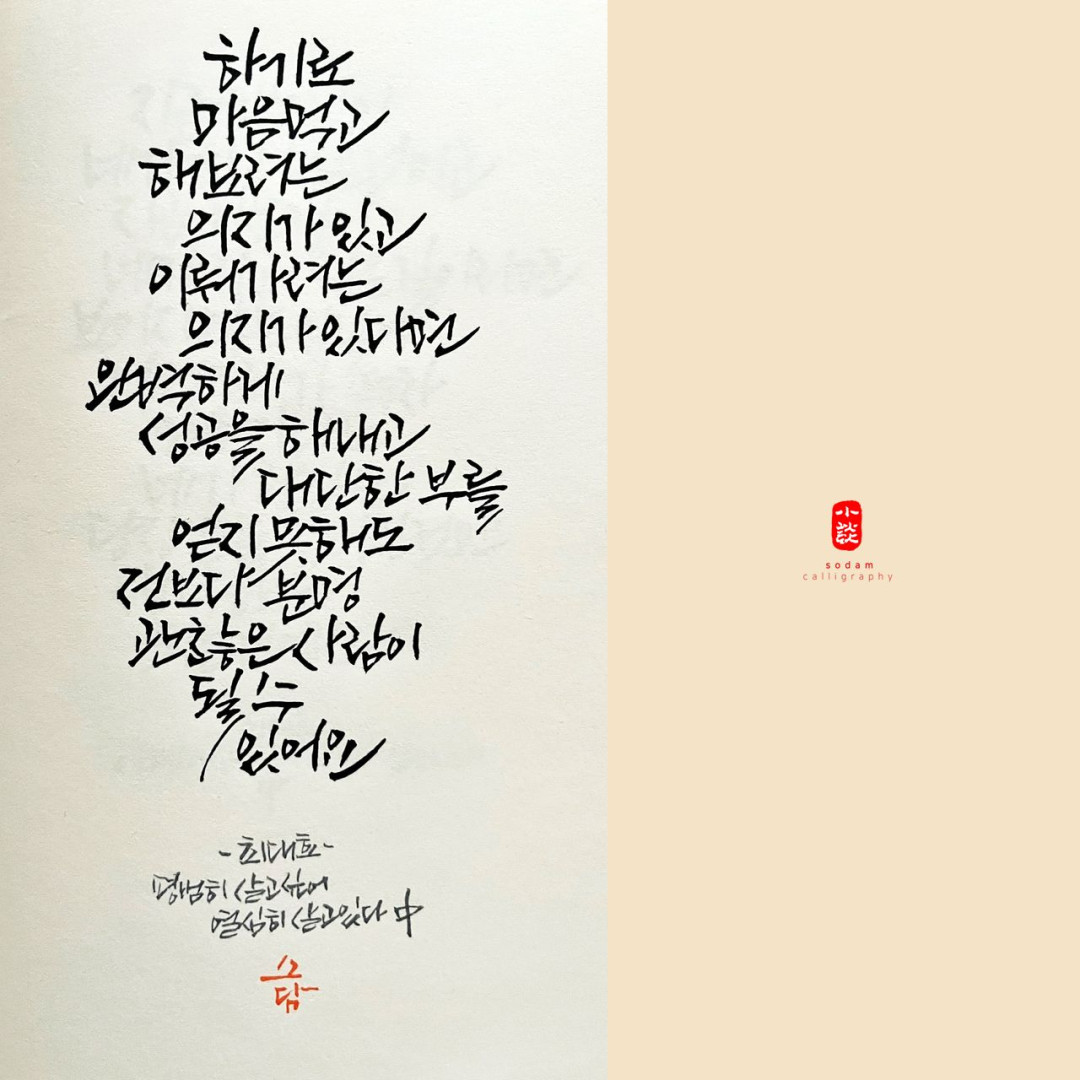 하기로
마음먹고
해보려는
의지가 있고
이뤄가려는
의지가 있다면
완벽하게
성공을 해내고
대단한 부를
얻지 못해도
전보다 분명
괜찮은 사람이
될 수
있어요
-최대호-
평범히 살고싶어
열심히 살고있다 中
소담
小談
sodam
calligraphy